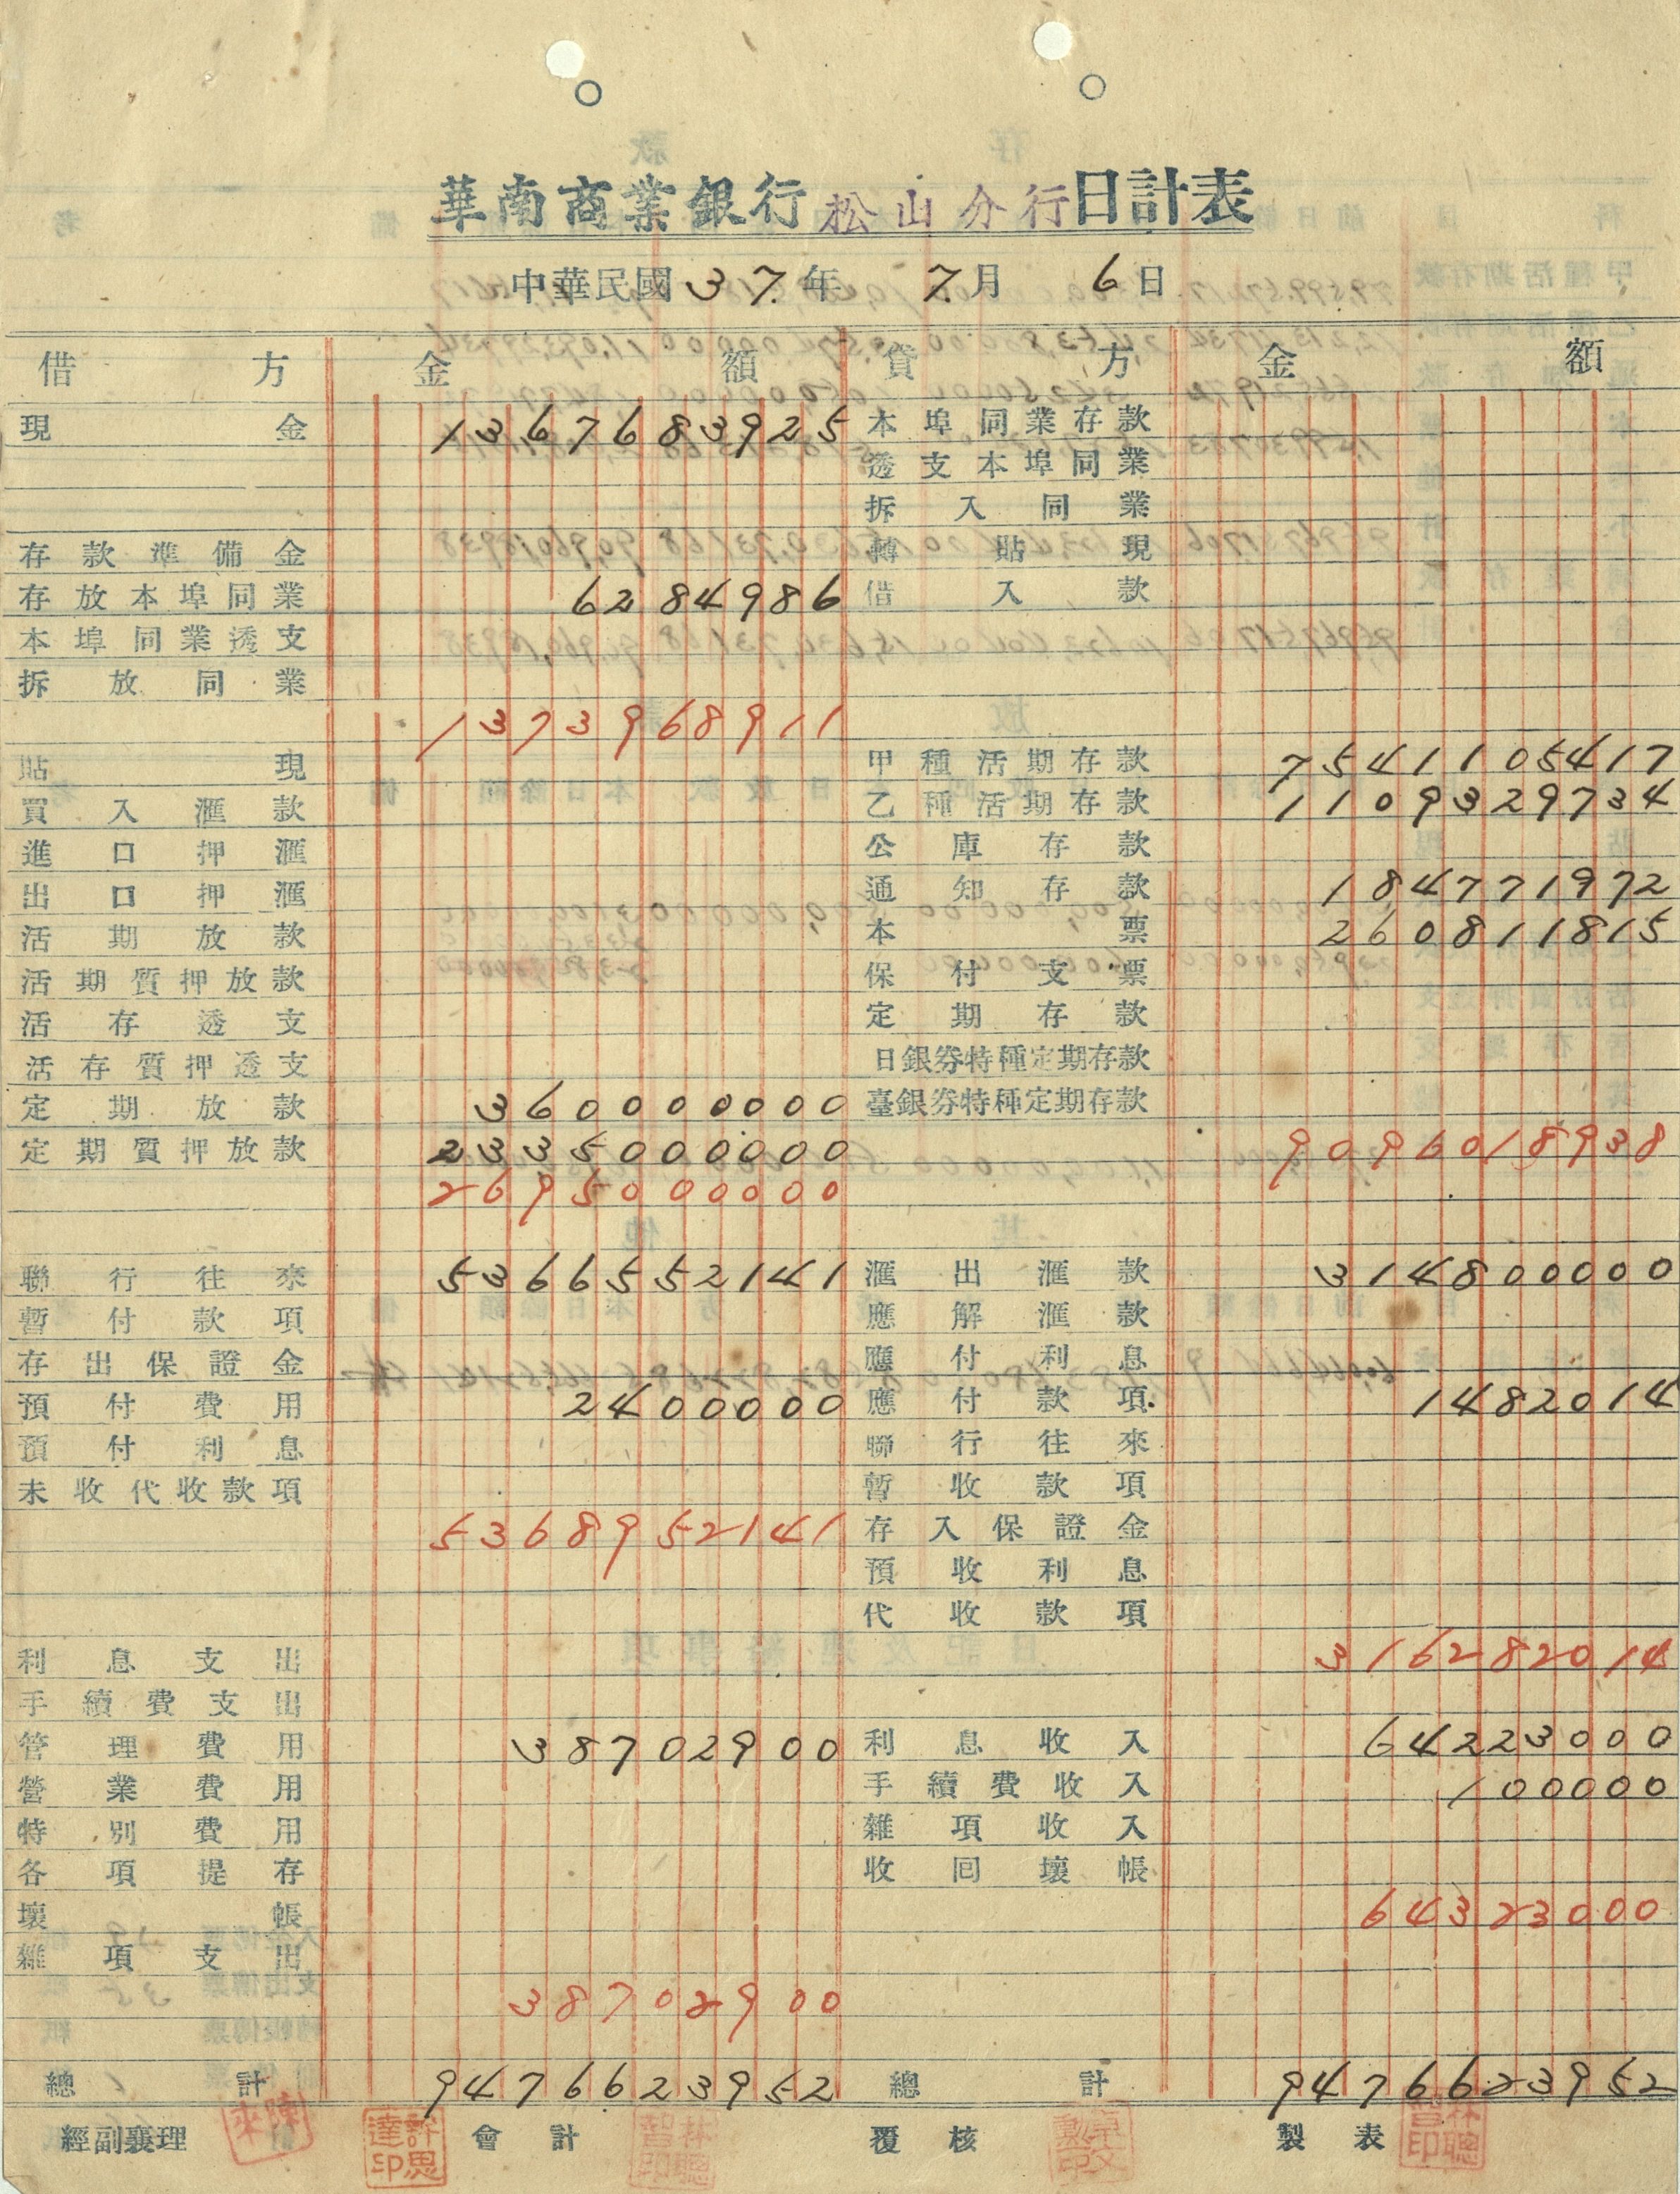 華南商業銀行松山分行日計表
中華民國37年 7月 6日
借方 金額 貸方 金額
現金 1367683925 本埠同業存款
透支本埠同業
拆入同業
存款準備金 轉貼現
存放本埠同業 6284986 借入款
本埠同業透支
拆放同業
1373968911
貼現 甲種活期存款 7541105417
買入滙款 乙種活期存款 1109329734
進口押滙 公庫存款
出口押滙 通知存款 184771972
活期放款 本票 260811815
活期質押放款 保付支票
活存透支 定期存款
活存質押透支 日銀券特種定期存款
定期放款 360000000 臺銀券特種定期存款
定期質押放款 2335000000 9096018938
2695000000
聯行往來 5366552141 滙出滙款 314800000
暫付款項 應解滙款
存出保證金 應付利息
預付費用 2400000 應付款項 1482014
預付利息 聯行往來
未收代收款項 暫收款項
5368952141 存入保證金
預收利息
代收款項
利息支出 316282014
手續費支出
管理費用 38702900 利息收入 64223000
營業費用 手續費收入 100000
特別費用 雜項收入
各項提存 收回壞帳
壞帳 64323000
雜項支出
38702900
總計 9476623952 總計 9476623952
經副襄理 會計 覆核 製表